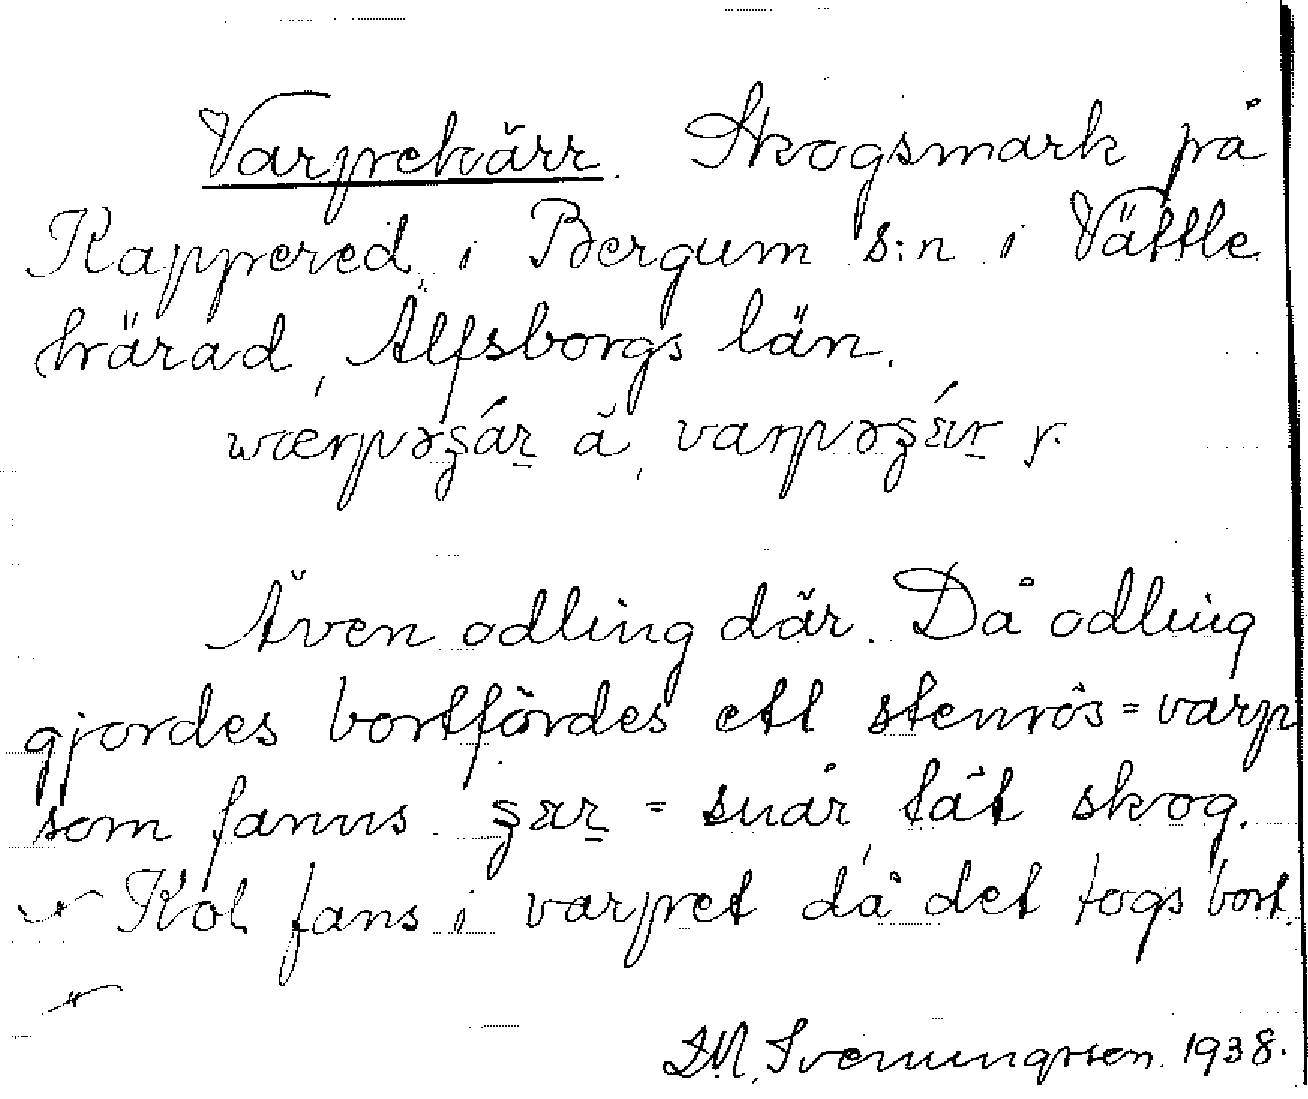 Varpekärr. Skogsmark på
Kappered, i Bergum s:n i Vättle
härad, Älfsborgs län.
ä, y.
Även odling där. Då odling
gjordes bortfördes ett stenrös = varp
som fanns. = snår, tät skog.
Kol fans i varpet då det togs bort.
Sveningsson. 1938.